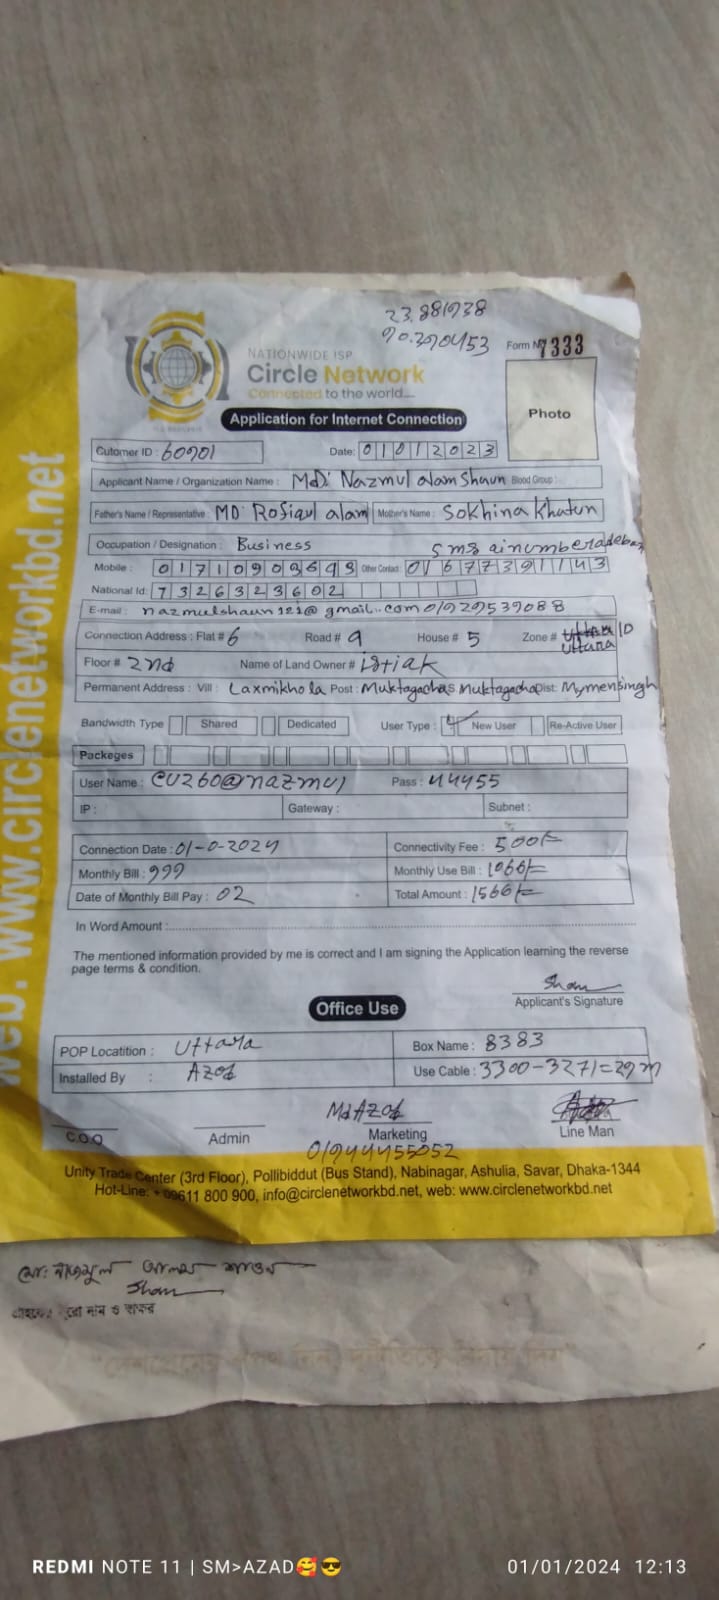 23.881938
90.390453
NATIONWIDE ISP
Circle Network
Connected to the world....
Form N 7333
Photo
Application for Internet Connection
Cutomer ID : 60901 Date: 01012023
Applicant Name / Organization Name : MD: Nazmul alam Shaun Blood Group :
Father's Name / Representative : MD Rofiqul alam Mother's Name : Sokhina Khatun
Occupation / Designation : Business
Mobile : 01710909693 Other Contact: 01677391143
National Id: 7326323602
E-mail : nazmulshaun121@gmail.com 01929539088
Connection Address : Flat # 6 Road # 9 House # 5 Zone # Uttara 10
Uttara
Floor # 2nd Name of Land Owner # istiak
Permanent Address : Vill : Laxmikhola Post : Muktagacha Muktagacha Dist: Mymensingh
Bandwidth Type Shared Dedicated User Type : New User Re-Active User
Packeges
User Name : CU260@nazmul Pass : 44455
IP : Gateway : Subnet :
Connection Date : 01-0-2024 Connectivity Fee : 500/=
Monthly Bill : 999 Monthly Use Bill : 1066/=
Date of Monthly Bill Pay : 02 Total Amount : 1566/=
In Word Amount :
The mentioned information provided by me is correct and I am signing the Application learning the reverse
page terms & condition.
Shaun
Applicant's Signature
Office Use
POP Locatition : Uttara Box Name : 8383
Installed By : Azad Use Cable : 3300-3271=29m
Md Azad
C.O.O Admin Marketing Line Man
01944455052
Unity Trade Center (3rd Floor), Pollibiddut (Bus Stand), Nabinagar, Ashulia, Savar, Dhaka-1344
Hot-Line: +09611 800 900, info@circlenetworkbd.net, web: www.circlenetworkbd.net
web: www.circlenetworkbd.net
মো: নাজমুল আলম শাওন
Shaun
গ্রাহকের পুরো নাম ও স্বাক্ষর
REDMI NOTE 11 | SM>AZAD🥰😎 01/01/2024 12:13